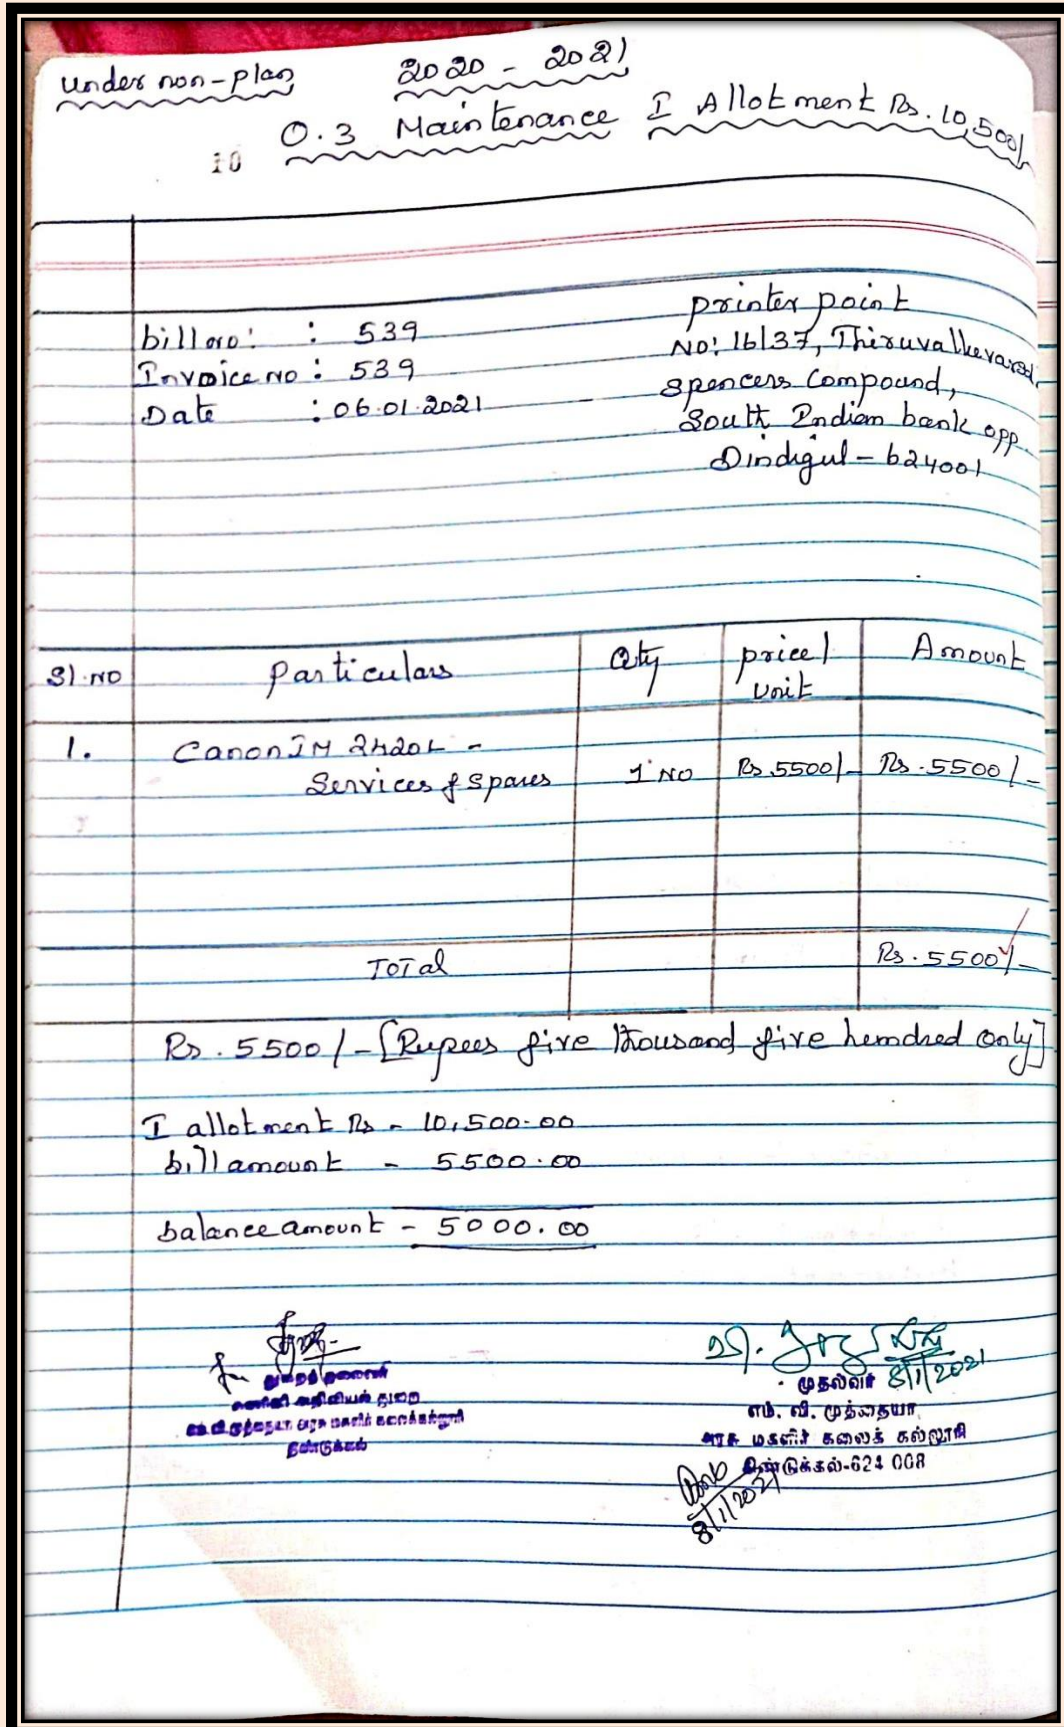 under non-plan 2020 - 2021
O.3 Maintenance I Allotment Rs. 10,500/-
10
bill no: : 539
Invoice no : 539
Date : 06.01.2021
printer point
No: 16/37, Thiruvallevarsd,
Spencers Compound,
South Indian bank opp.
Dindigul - 624001
Sl.NO Particulars Qty price/ unit Amount
1. Canon IM 2420L -
Services & Spares 1 NO Rs.5500/- Rs.5500/-
Total Rs.5500/-
Rs.5500/- [Rupees five thousand five hundred only]
I allotment Rs - 10,500.00
bill amount - 5500.00
balance amount - 5000.00
துறைத்தலைவர்
கணினி அறிவியல் துறை
எம்.வி.முத்தையா அரசு மகளிர் கலைக்கல்லூரி
திண்டுக்கல்
8/1/2021
முதல்வர்
எம். வி. முத்தையா
அரசு மகளிர் கலைக் கல்லூரி
திண்டுக்கல்-624 008
8/1/2021